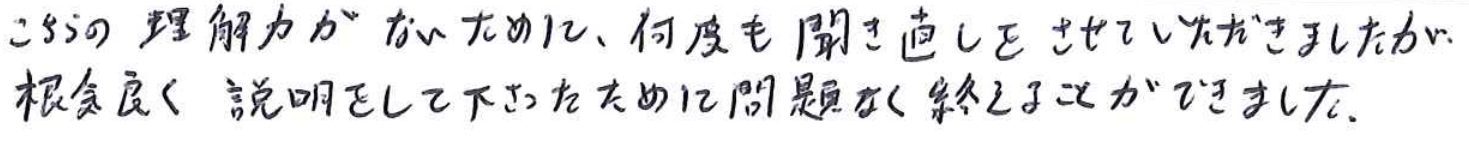 こちらの理解力がないために、何度も聞き直しをさせていただきましたが、
根気良く説明をして下さったために問題なく終えることができました。